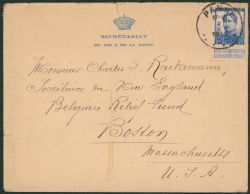 SECRÉTARIAT
DU ROI & DE LA REINE
Monsieur Charles S. Rackemann,
Secrétaire du New England
Belgian Relief Fund
Boston
Massachusetts
U. S. A